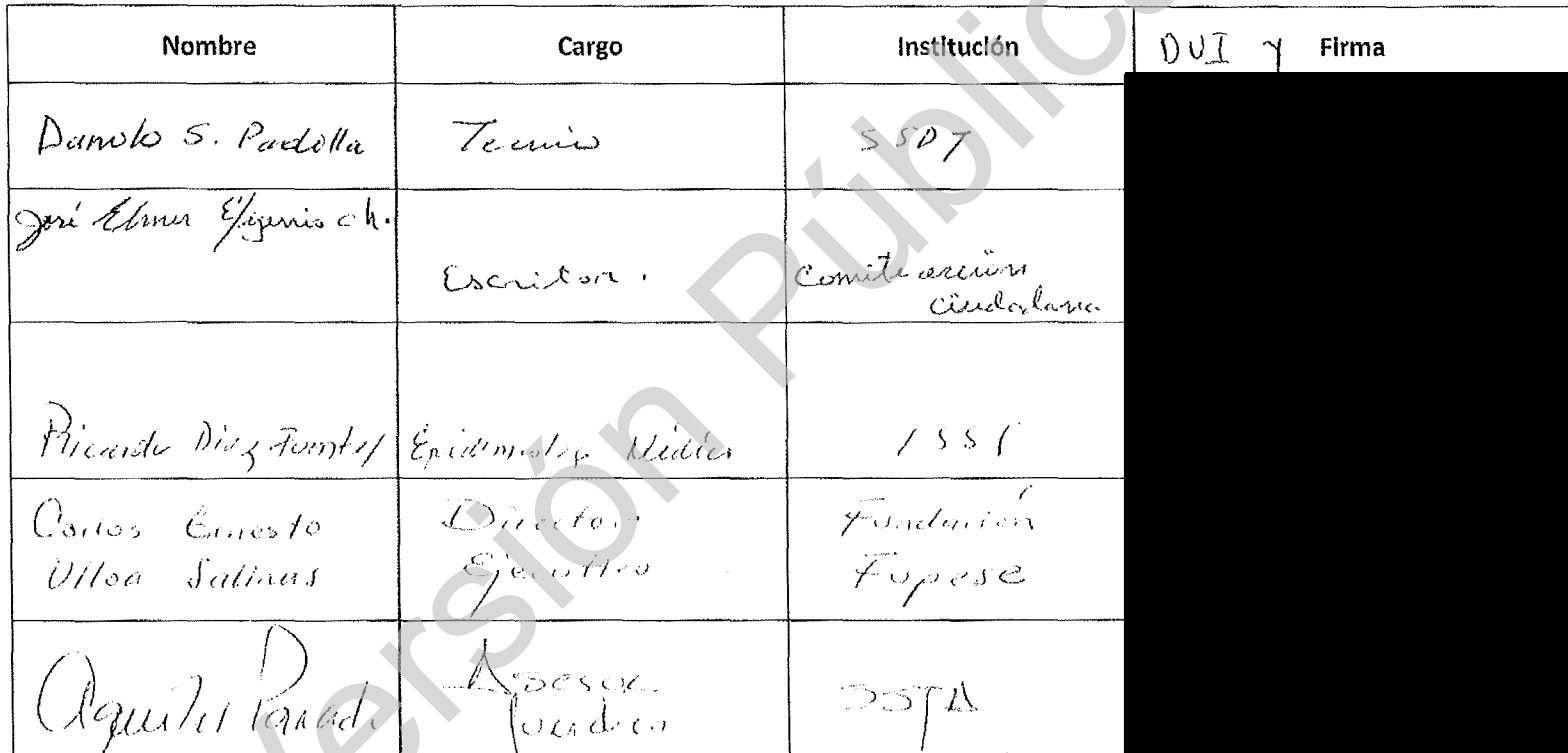 Nombre Cargo Institución DUI y Firma
Danilo S. Padilla Tecnico SSDT
José Elmer Efigenio Ch.
Escritor. Comite acción
ciudadana
Ricardo Díaz Fuentes Epidemiólogo Médico ISSS
Carlos Ernesto Director Fundación
Ulloa Salinas Ejecutivo Fupese
Aquiles Parada Asesor SSTA
Jurídico
Versión Pública